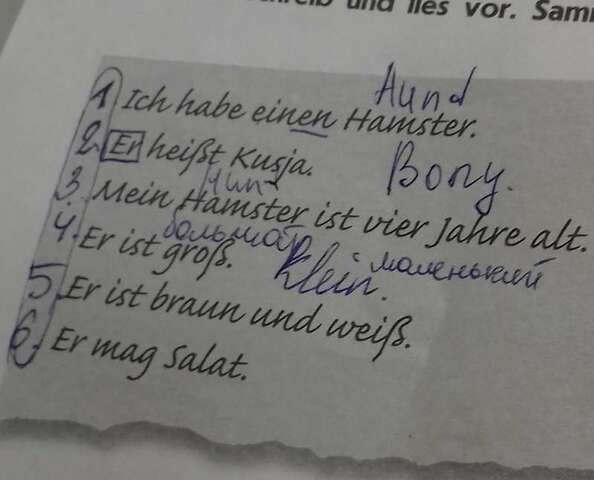 schreib und lies vor. Samm
Hund
1 Ich habe einen Hamster.
2. Er heißt Kusja. Bony.
3. Mein Hamster ist vier Jahre alt.
большая
4. Er ist groß. Klein. маленький
5. Er ist braun und weiß.
6. Er mag Salat.